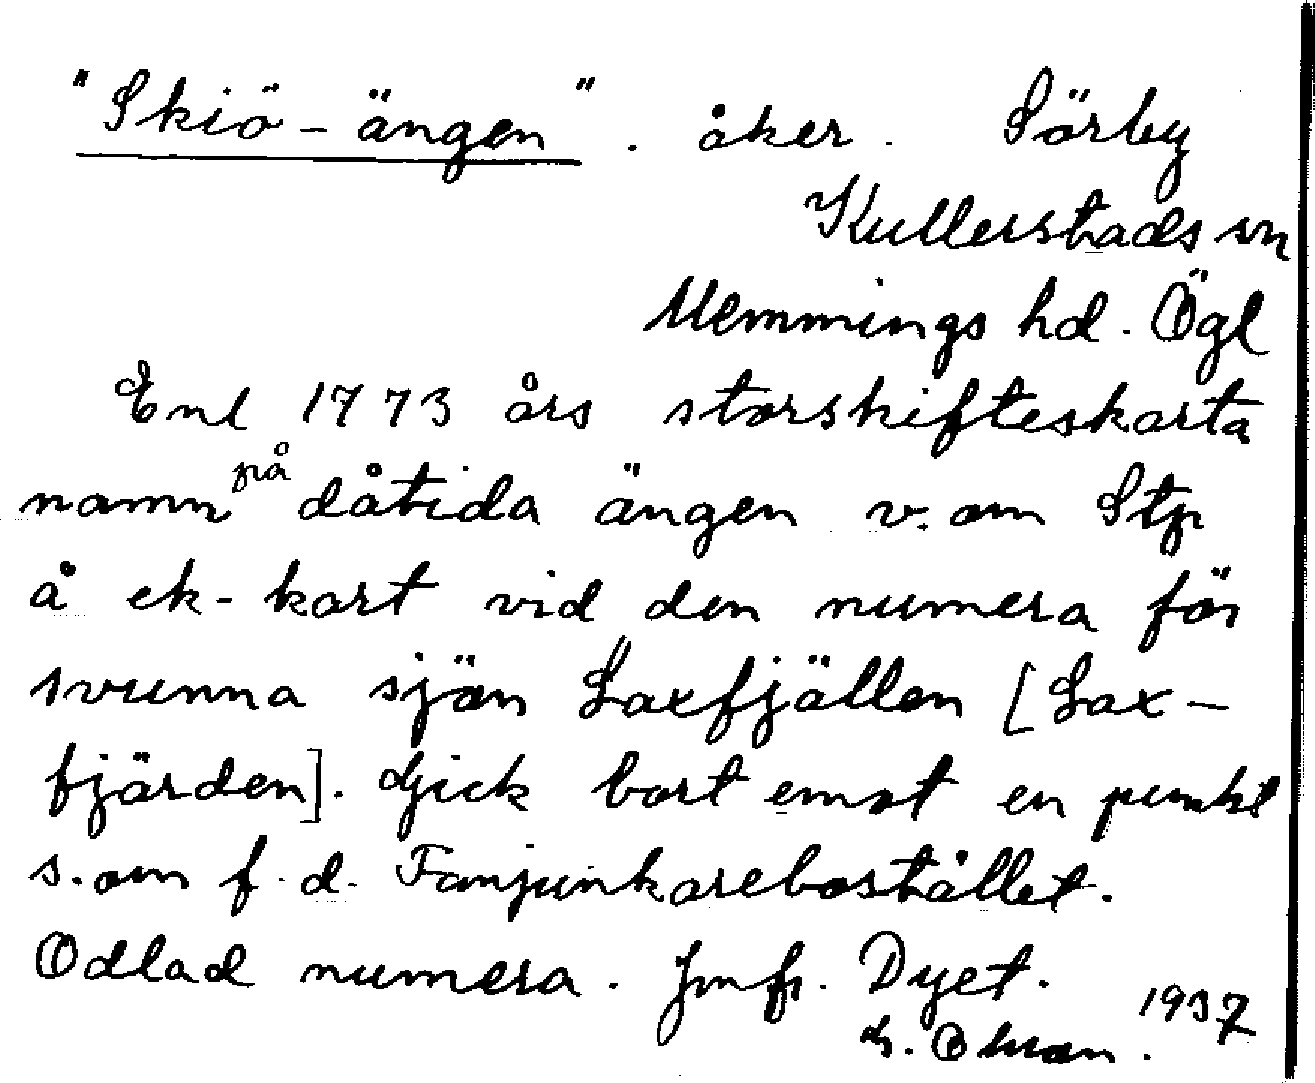 "Skiö-ängen". åker. Sörby
Kullerstads sn
Memmings hd. Ögl
Enl 1773 års storskifteskarta
namn på dåtida ängen v. om Stp
å ek-kart vid den numera för
svunna sjön Laxfjällen [Lax-
fjärden]. Gick bort emot en punkt
s. om f.d. Fanjunkarebostället.
Odlad numera. Jmfr. Dyet.
1937